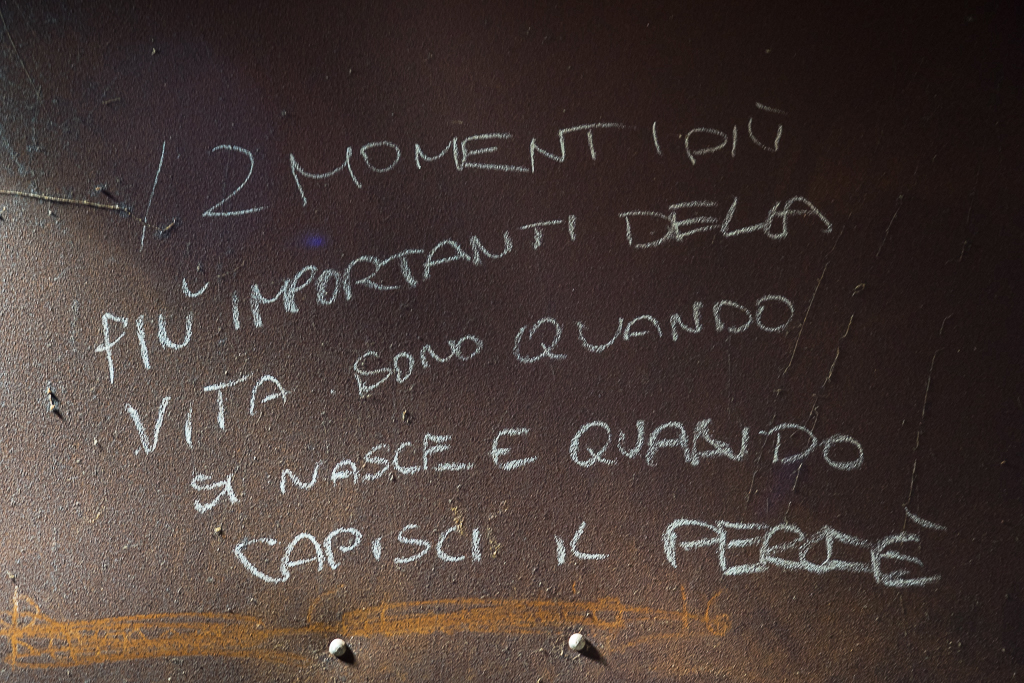 I 2 MOMENTI PIÙ
PIÙ IMPORTANTI DELLA
VITA SONO QUANDO
SI NASCE E QUANDO
CAPISCI IL PERCHÈ